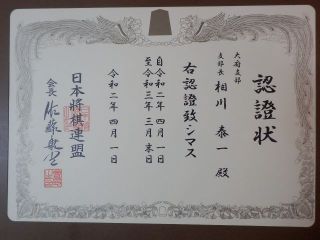 認證状
大府支部
支部長 相川泰一殿
右認證致シマス
自令和二年四月一日
至令和三年三月末日
令和二年四月一日
日本將棋連盟
会長 佐藤康光